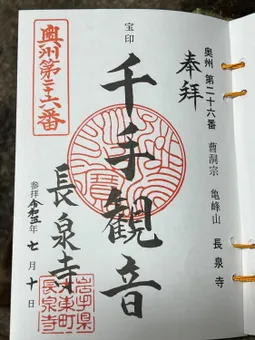 奥州 第二十六番 曹洞宗 亀峰山 長泉寺
奉拝
宝印
千手観音
長泉寺
参拝 令和五年 七月 十日
奥州第二十六番
岩手県
大東町
長泉寺